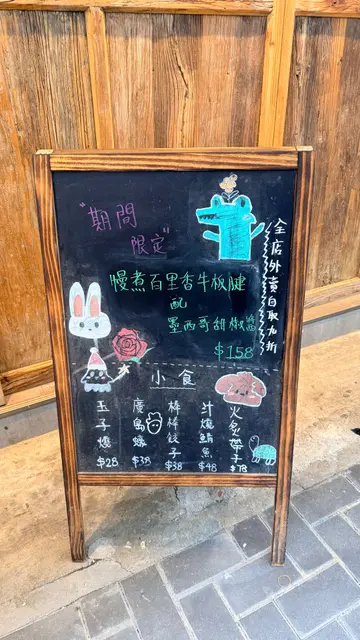 "期間
限定"
慢煮百里香牛板腱
配
墨西哥甜椒醬
$158
全店外賣自取九折
小食
玉子燒
$28
廣島蠔
$38
棒棒餃子
$38
汁燒鯖魚
$48
火炙帶子
$78